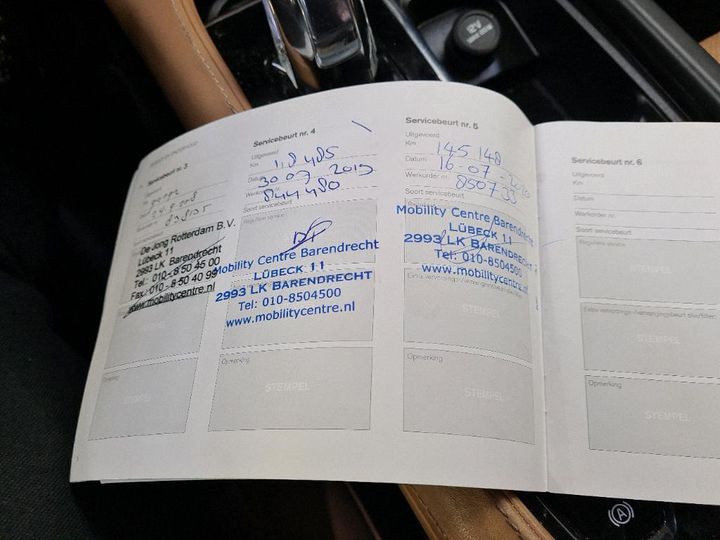 12V
Servicebeurt nr. 3
De Jong Rotterdam B.V.
Lübeck 11
2993 LK Barendrecht
Tel.: 010 - 8 50 45 00
Fax.: 010 - 8 50 40 99
www.mobilitycentre.nl
Opmerking
STEMPEL
Servicebeurt nr. 4
Uitgevoerd
Km 118 485
Datum 30 07 2019
Werkorder nr. 844480
Soort servicebeurt
Reguliere service
Mobility Centre Barendrecht
LÜBECK 11
2993 LK BARENDRECHT
Tel: 010-8504500
www.mobilitycentre.nl
Opmerking
STEMPEL
Servicebeurt nr. 5
Uitgevoerd
Km 145 148
Datum 16-07-2020
Werkorder nr. 850733
Soort servicebeurt
Mobility Centre Barendrecht
LÜBECK 11
2993 LK BARENDRECHT
Tel: 010-8504500
www.mobilitycentre.nl
STEMPEL
Opmerking
STEMPEL
Servicebeurt nr. 6
Uitgevoerd
Km
Datum
Werkorder nr.
Soort servicebeurt
Reguliere service
STEMPEL
Opmerking
STEMPEL
A